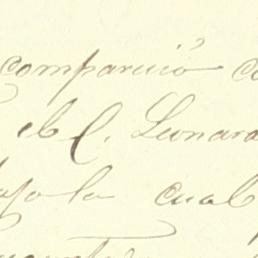 compareció
el C. Leonard
bajo la cual